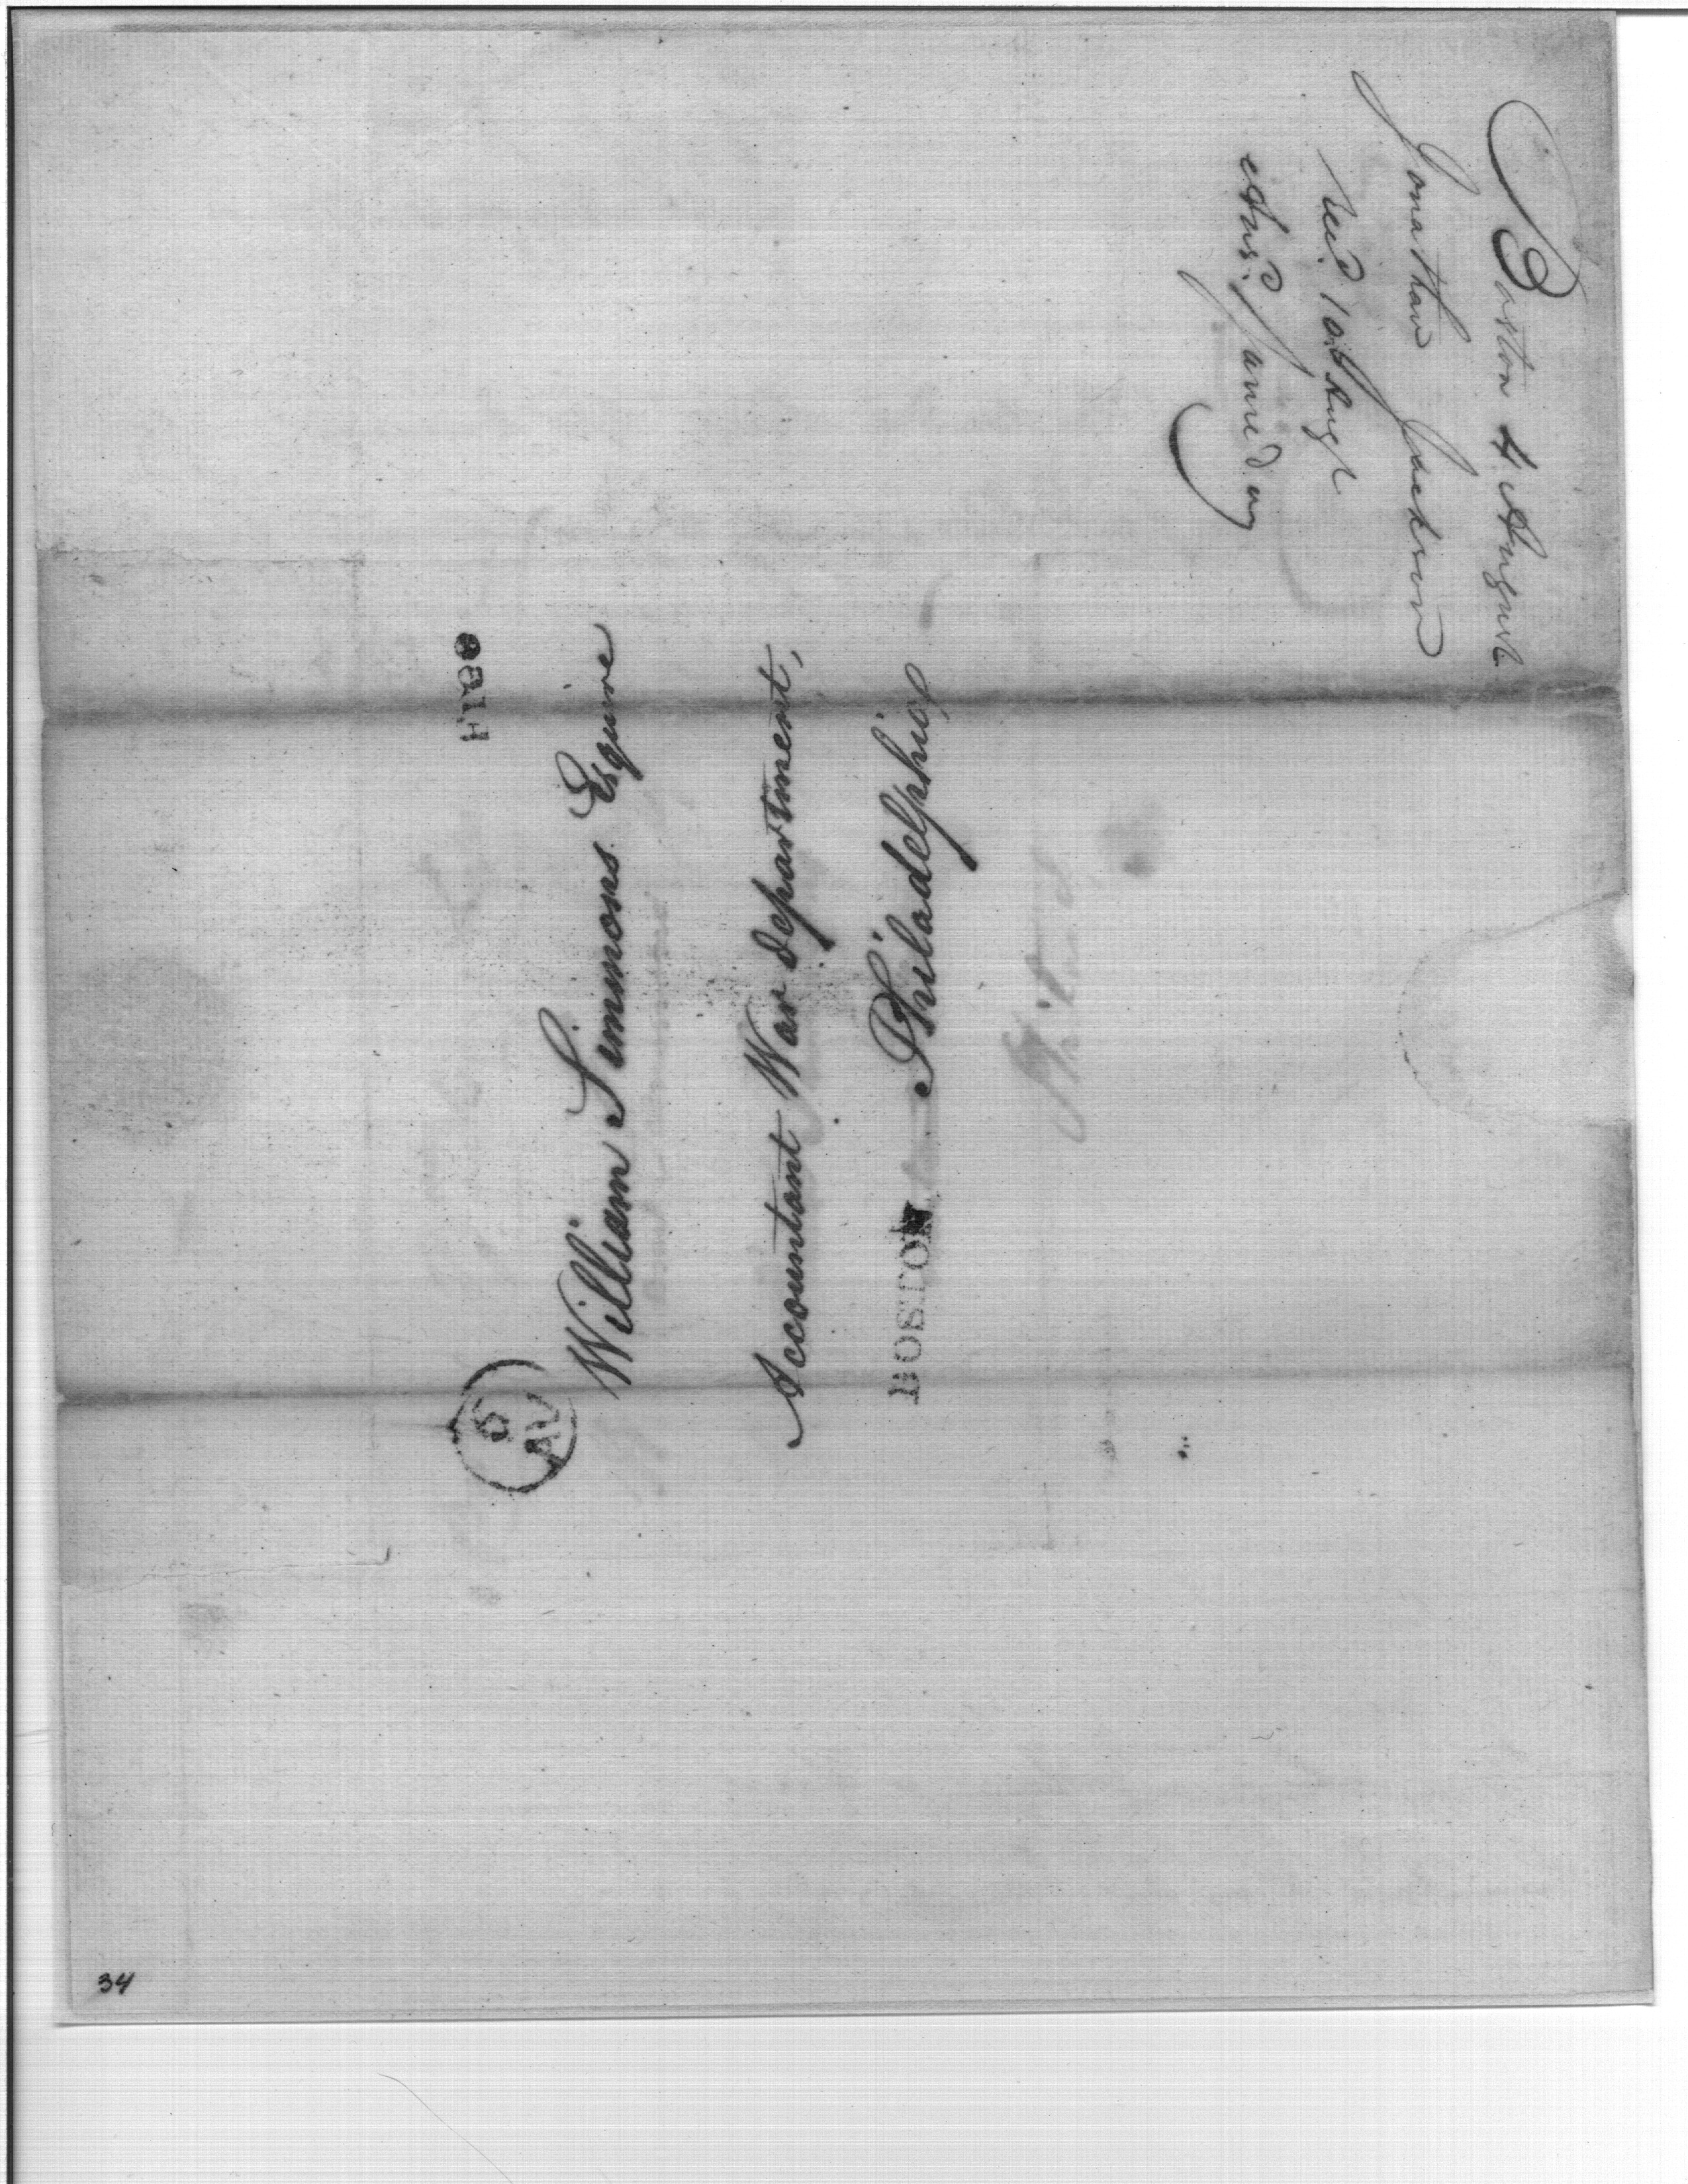 Boston 4 August
Jonathan Jackson
Recd 10th Augt
Ansd same day
FREE
William Simmons Esquire
Accountant War department,
Philadelphia
BOSTON
5
AU
34